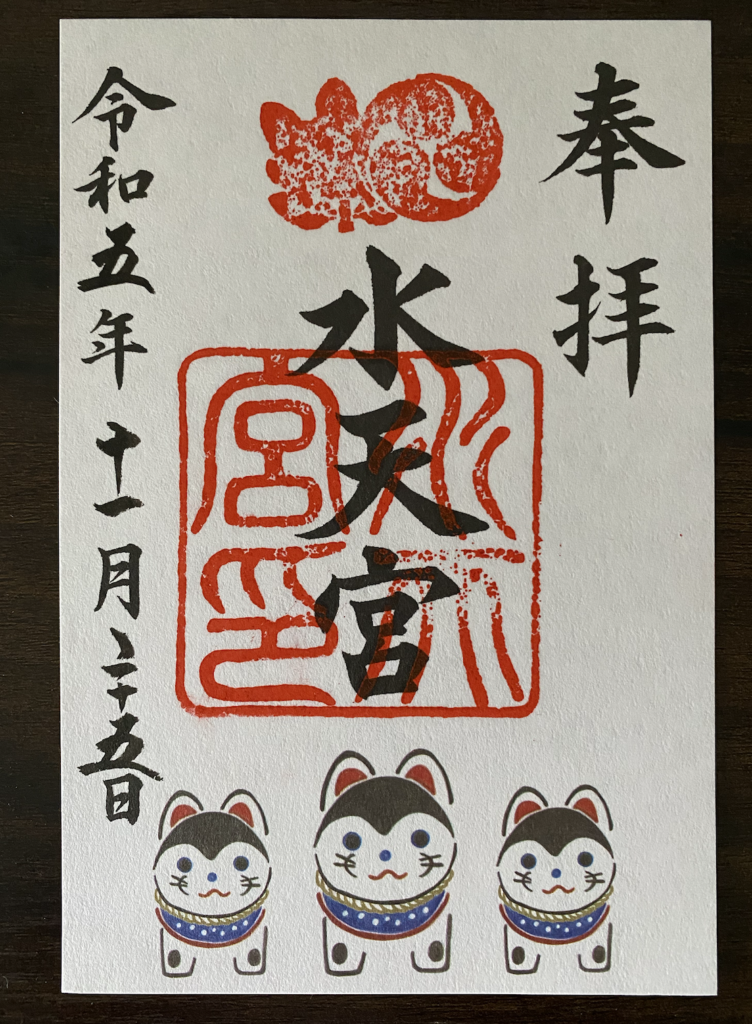 奉拝
水天宮
水天宮印
令和五年十一月二十五日